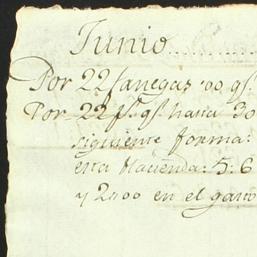 Junio
Por 22 fanegas 00 qs.
Por 22 fs. qs. hasta 30
siguiente forma:
esta Hacienda: 5: 6
y 2900 en el gasto